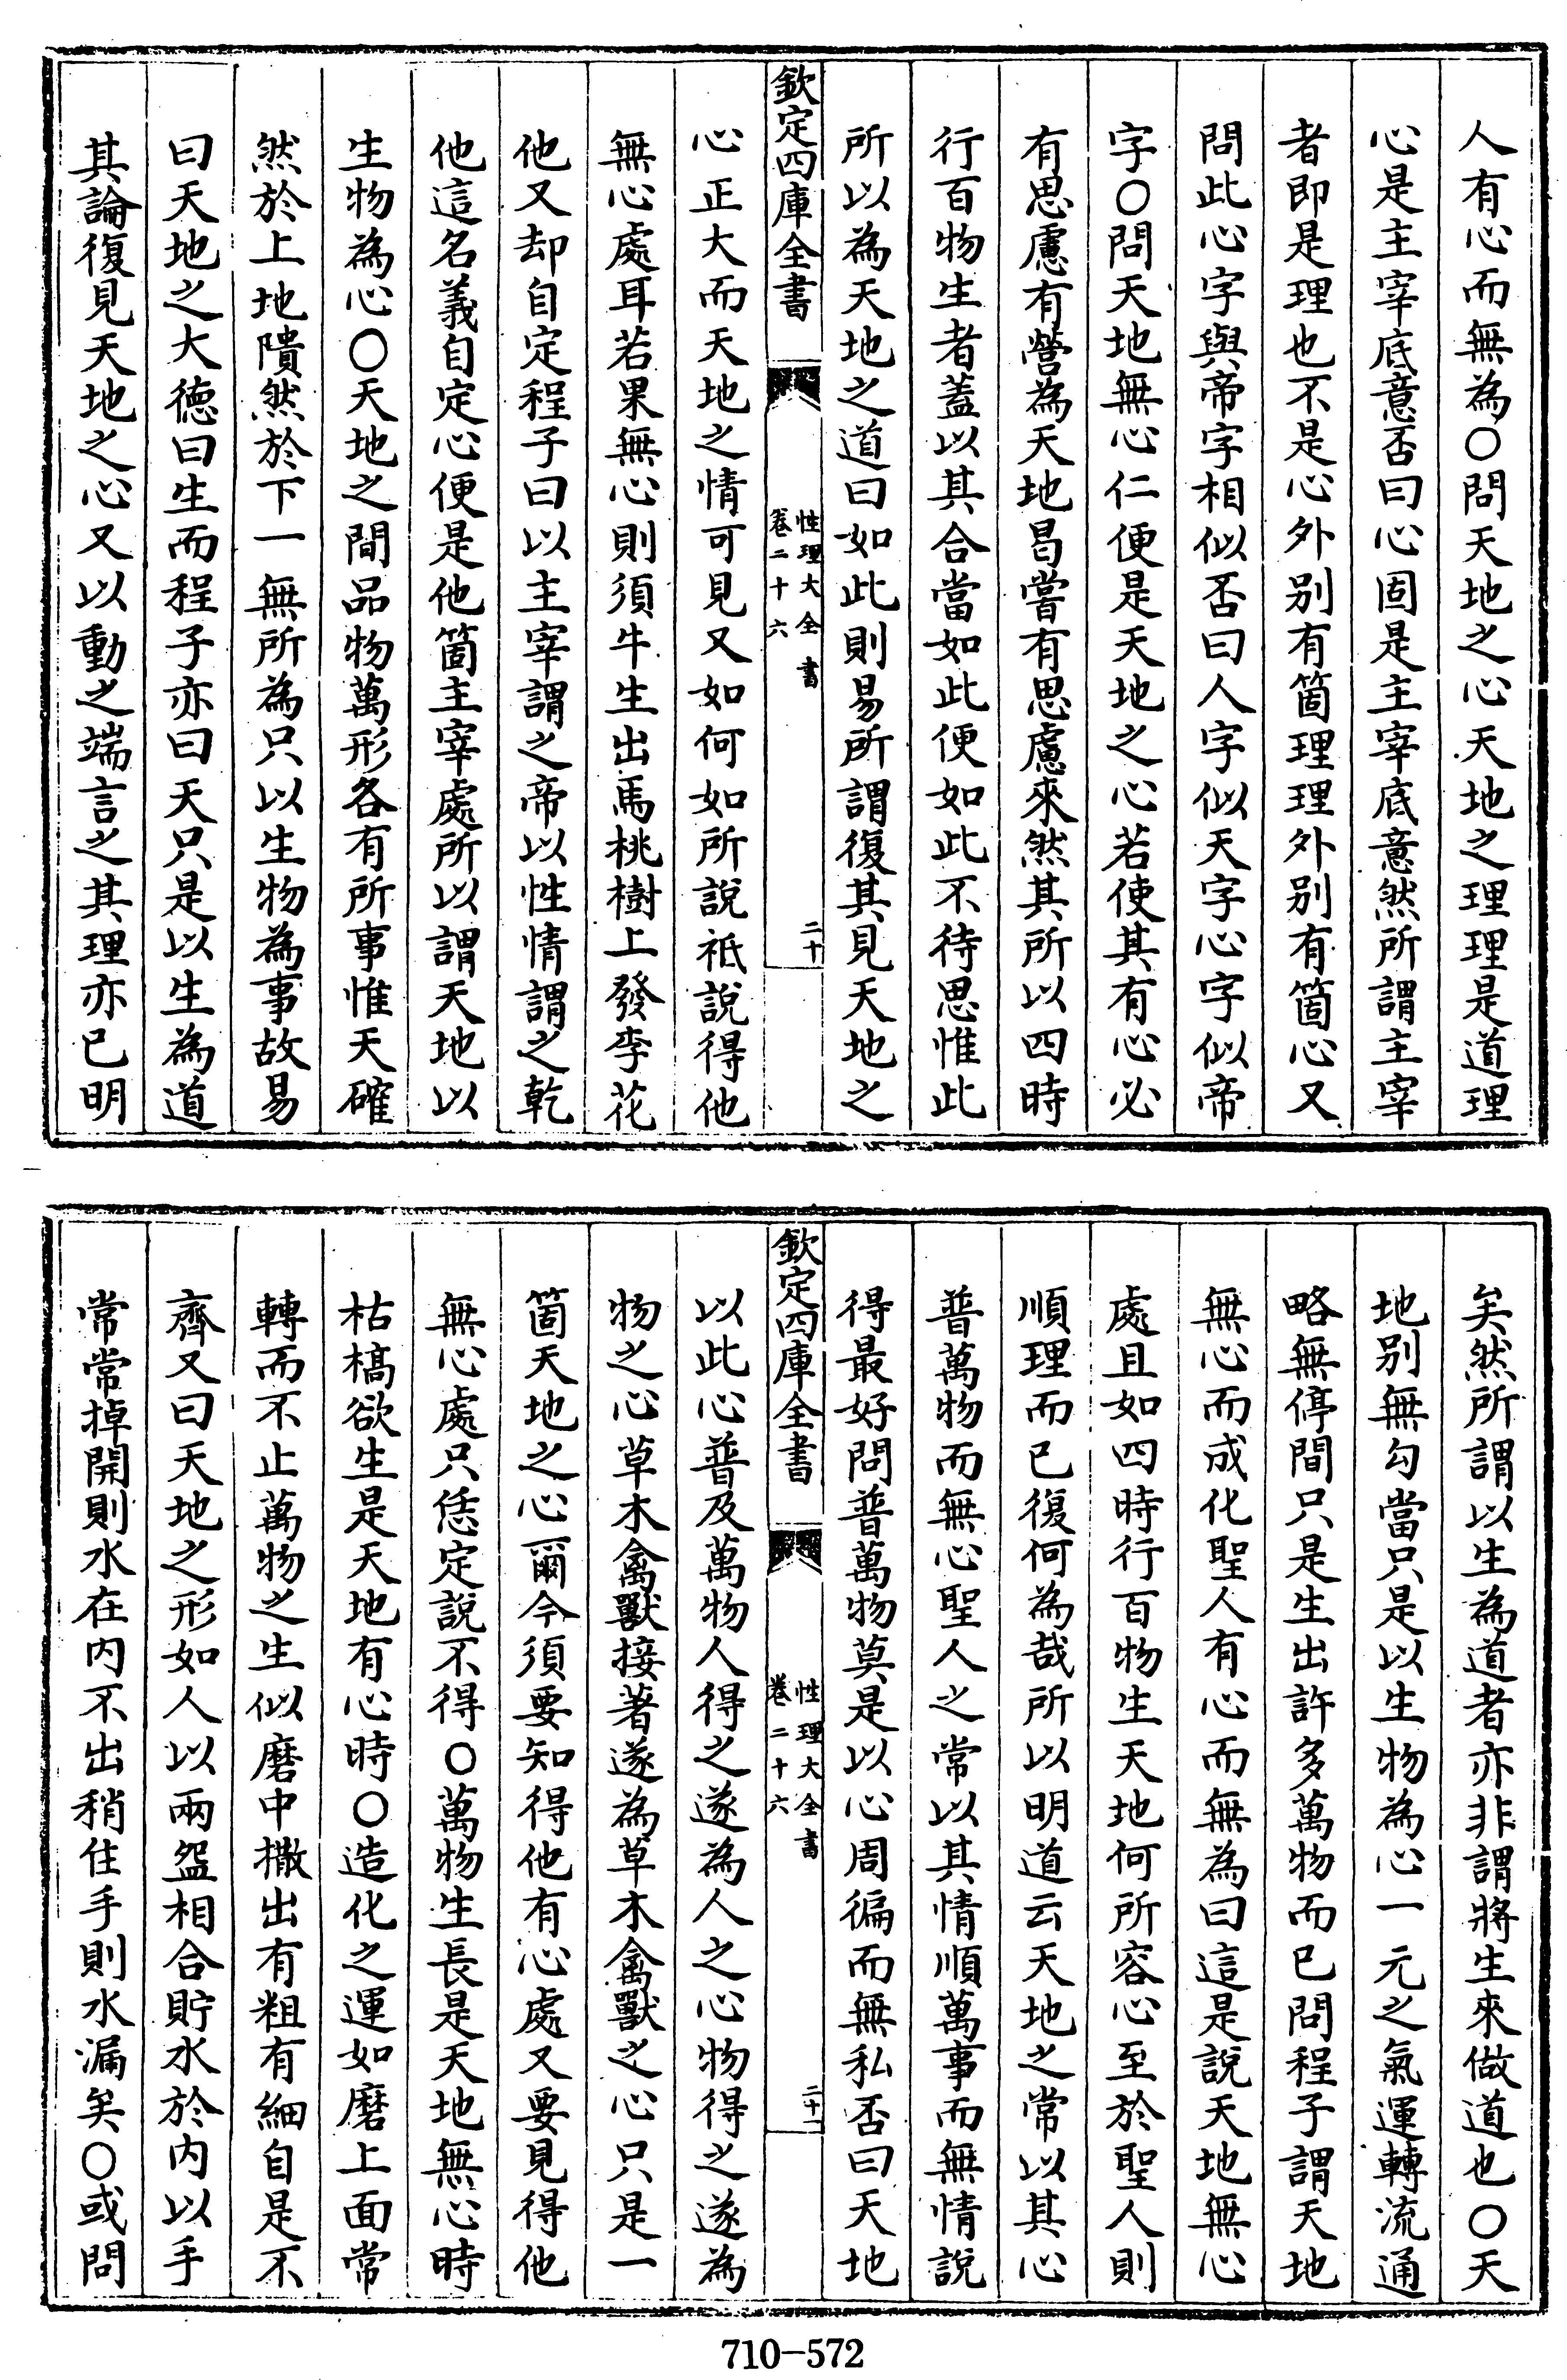 人有心而無為○問天地之心天地之理理是道理
心是主宰底意否曰心固是主宰底意然所謂主宰
者即是理也不是心外别有箇理理外别有箇心又
問此心字與帝字相似否曰人字似天字心字似帝
字○問天地無心仁便是天地之心若使其有心必
有思慮有營為天地曷嘗有思慮來然其所以四時
行百物生者蓋以其合當如此便如此不待思惟此
所以為天地之道曰如此則易所謂復其見天地之
欽定四庫全書
性理大全書
卷二十六
二十
心正大而天地之情可見又如何如所說祗說得他
無心處耳若果無心則須牛生出馬桃樹上發李花
他又却自定程子曰以主宰謂之帝以性情謂之乾
他這名義自定心便是他箇主宰處所以謂天地以
生物為心○天地之間品物萬形各有所事惟天確
然於上地隤然於下一無所為只以生物為事故易
曰天地之大徳曰生而程子亦曰天只是以生為道
其論復見天地之心又以動之端言之其理亦已明
矣然所謂以生為道者亦非謂將生來做道也○天
地别無勾當只是以生物為心一元之氣運轉流通
略無停間只是生出許多萬物而已問程子謂天地
無心而成化聖人有心而無為曰這是說天地無心
處且如四時行百物生天地何所容心至於聖人則
順理而已復何為哉所以明道云天地之常以其心
普萬物而無心聖人之常以其情順萬事而無情說
得最好問普萬物莫是以心周徧而無私否曰天地
欽定四庫全書
性理大全書
卷二十六
二十一
以此心普及萬物人得之遂為人之心物得之遂為
物之心草木禽獸接著遂為草木禽獸之心只是一
箇天地之心爾今須要知得他有心處又要見得他
無心處只恁定說不得○萬物生長是天地無心時
枯槁欲生是天地有心時○造化之運如磨上面常
轉而不止萬物之生似磨中撒出有粗有細自是不
齊又曰天地之形如人以兩盌相合貯水於内以手
常常掉開則水在内不出稍住手則水漏矣○或問
710-572